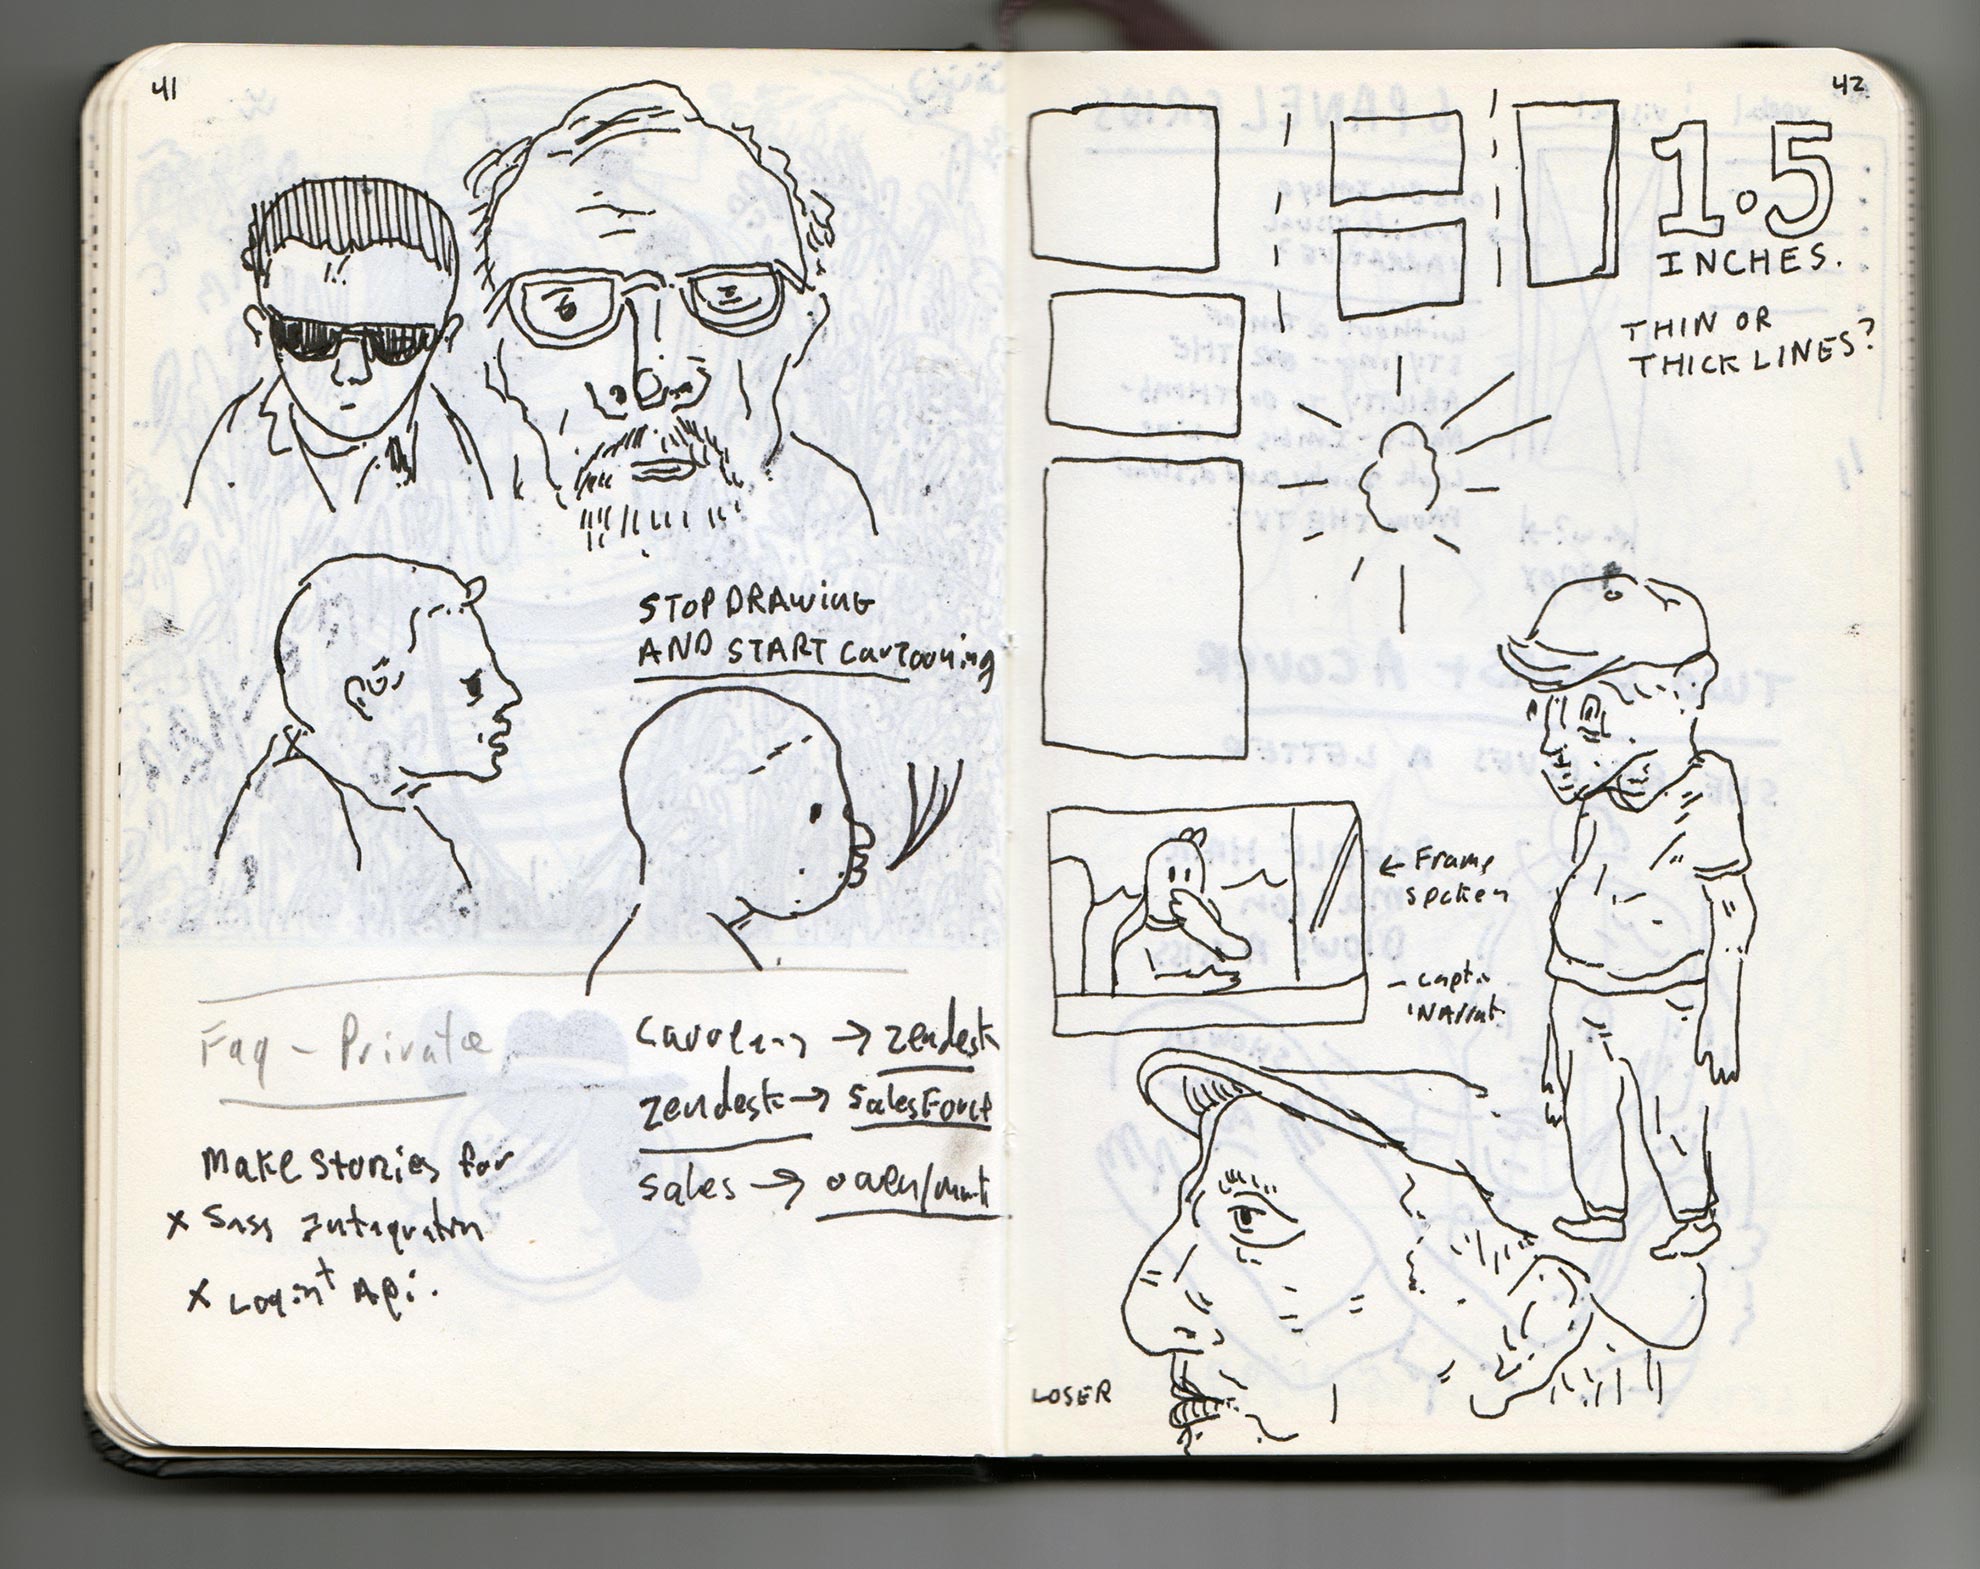 41
STOP DRAWING
AND START CARTOONING
Faq - Private
make stories for
x Sass Integration
x Login + Api.
→ zendesk
zendesk → SalesForce
sales →
42
1.5
INCHES.
THIN OR
THICK LINES?
← Frame
spoken
LOSER